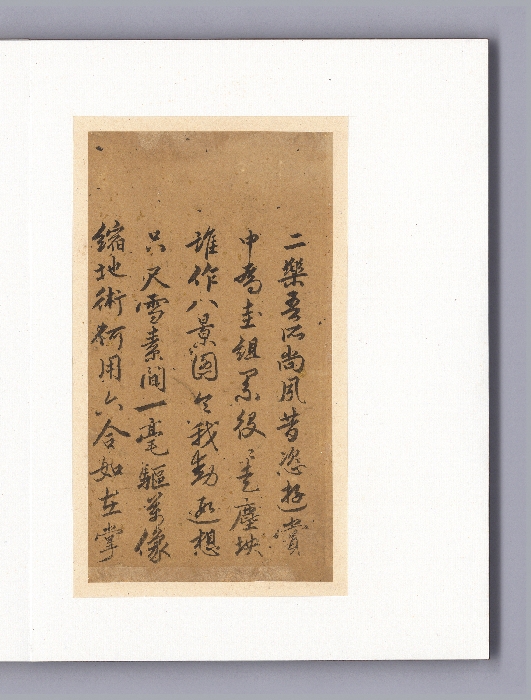 二樂吾所尚夙昔恣遊賞
中為圭組累役〻走塵坱
誰作八景圖令我動遐想
只尺雪素間一毫驅萬像
縮地術何用六合如在掌